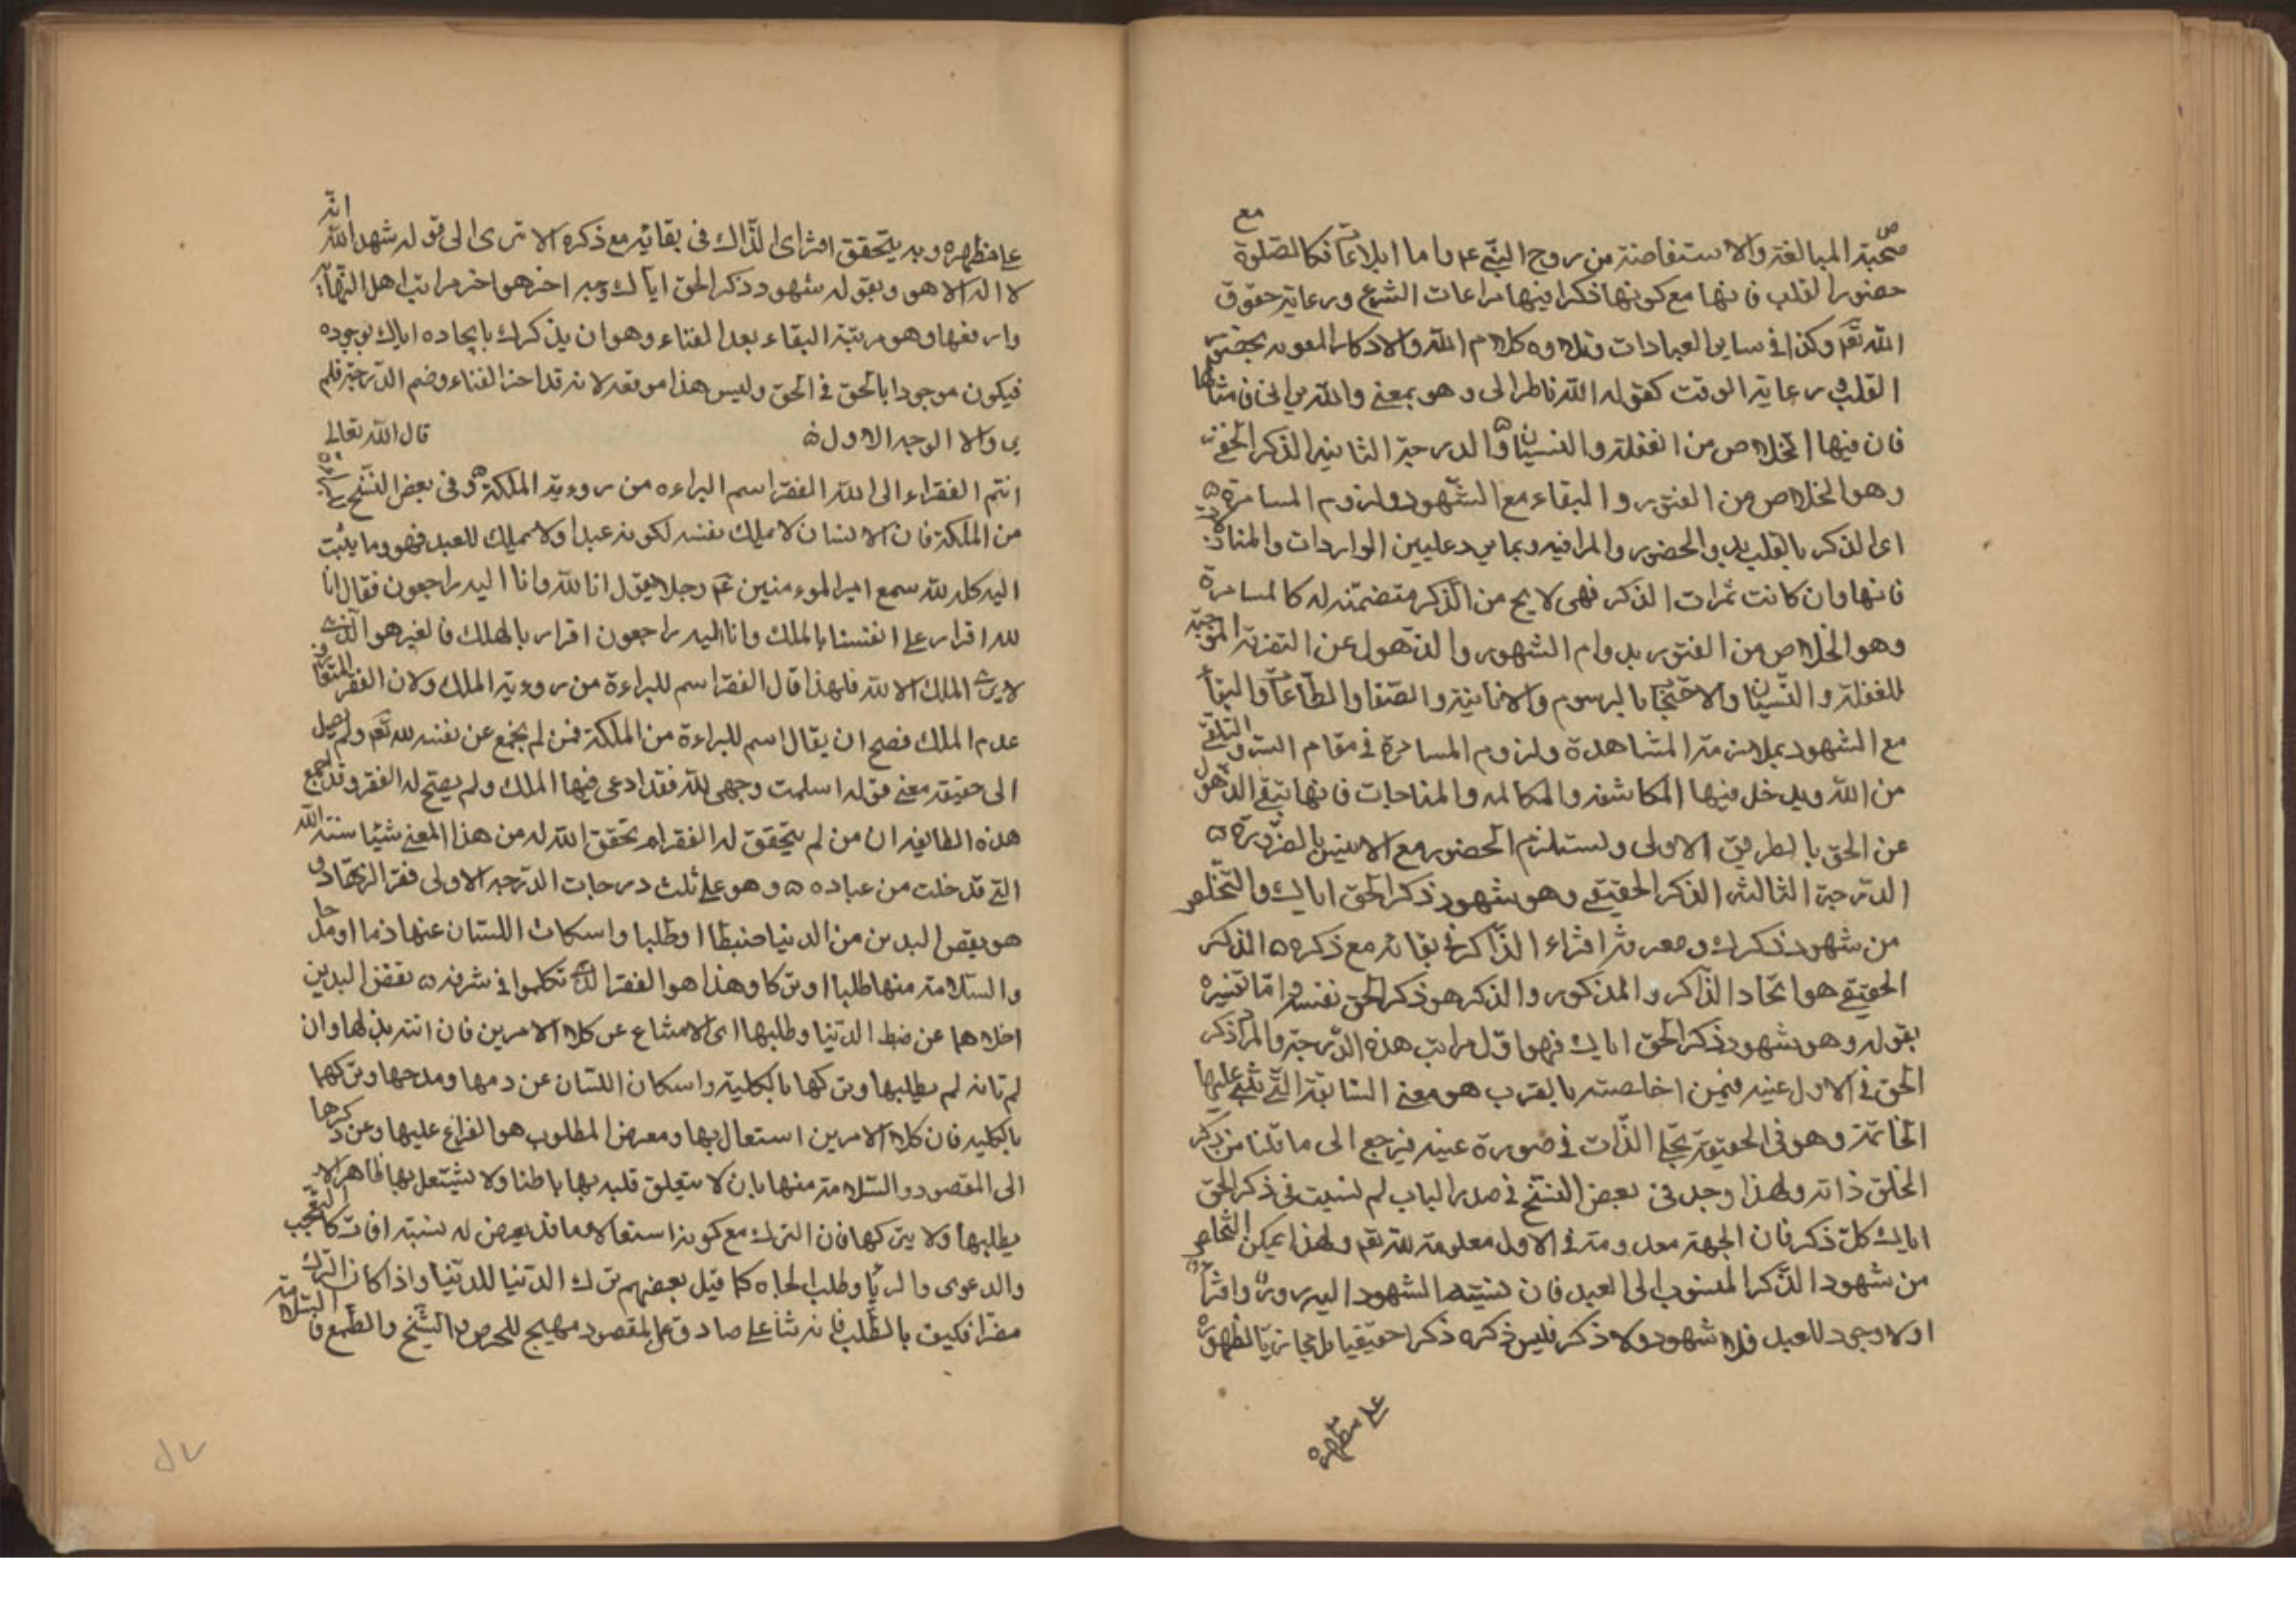 صحبة المبالغة والاستفاضة من روح النبي عم واما ابلاغا فكالصلوة مع
حضور القلب فانها مع كونها ذكرا فيها مراعات الشرع ورعاية حقوق
الله تعم وكذا في ساير العبادات وتلاوه كلام الله والاذكار
القلب ورعاية الوقت كقوله الله ناظر الى وهو بمعنى والله يراني فان مثالها
فان فيها الخلاص من الغفلة والنسيان والدرجة الثانية الذكر الخفي
وهو الخلاص من الفتور والبقاء مع الشهود ولزوم المسامرة
اى الذكر بالقلب بل والحضور والمراقبه وبما يرد عليين الواردات
فانها وان كانت ثمرات الذكر فهى لا يح من الذكر متضمنه له كالمسامرة
وهو الخلاص من الفتور بدوام الشهور والذهول عن التفرقة الموجبة
للغفلة والنسيان والاحتجاب بالرسوم والانانية والصفا والطاعات والبقاء
مع الشهود بملازمة المشاهدة ولزوم المسامرة في مقام السر والتلقى
من الله ويدخل فيها المكاشفه والمكالمه والمناجات فانها تبقى الذهول
عن الحق بالطريق الاولى ويستلزم الحضور مع الاثنين بالضرورة
الدرجة الثالثه الذكر الحقيقى وهو شهود ذكر الحق اياك والتخلص
من شهود ذكرك ومعرفة افتراء الذاكر فى بقائه مع ذكره الذكر
الحقيقى هو اتحاد الذاكر والمذكور والذكر هو ذكر الحق نفسه واما تفسيره
بقوله وهو شهود ذكر الحق اياك فهو اول مراتب هذه الدرجة والمراد ذكر
الحق فى الاول عنيه فيمن اخاصته بالقرب هو معنى السابقة التى تبتنى عليها
الخاتمة وهو فى الحقيقة تجلى الذات فى صورة عينه فيرجع الى ما قلنا من ذكر
الخلق ذاته ولهذا وجد فى بعض النسخ فى صدر الباب لم نسيت فى ذكر الحق
اياك كل ذكر فان الجهة معدومة فى الاول معلومة لله تعم ولهذا يمكن التخلص
من شهود الذكر المنسوب الى العبد فان نسبته الشهود اليه زور وافتراء
او لا وجود للعبد فلا شهود ولا ذكر فليس ذكره ذكرا حقيقيا بل مجازيا لظهوره
على مظهره
على مظهره وبه يتحقق افتراى الذاك فى بقائه مع ذكره الا ترى الى قوله شهد الله انه
لا اله الا هو وبقوله شهود ذكر الحق اياك وجه اخر هو اخر مراتب اهل النهاية
وارفعها وهو مرتبة البقاء بعد الفناء وهو ان يذكرك بايجاده اياك بوجوده
فيكون موجودا بالحق فى الحق وليس هذا موقعه لانه قد احذ الفناء وضم الدرجة فلم
ير والا الوجه الاول قال الله تعالى
انتم الفقراء الى الله الفقر اسم البراءه من روءية الملكة وفى بعض النسخ
من الملكة فان الانسان لا يملك نفسه لكونه عبدا ولا يملك للعبد فهو وما يثبت
اليه كله لله سمع امير الموءمنين عم رجلا يقول انا لله وانا اليه راجعون فقال انا
لله اقرار على انفسنا بالملك وانا اليه راجعون اقرار بالهلك فالغير هو الذى
لا يرى الملك الا لله فلهذا قال الفقر اسم للبراءة من روءية الملك ولان الفقر
عدم الملك فصح ان يقال اسم للبراءة من الملكة فمن لم يخرج عن نفسه لله تعم ولم يصل
الى حقيقه معنى قوله اسلمت وجهى لله فقد ادعى فيها الملك ولم يصح له الفقر وقد اجمع
هذه الطايفه ان من لم يتحقق له الفقر لم يحقق الله له من هذا المعنى شيئا سنة الله
التى قد خلت من عباده وهو على ثلث درجات الدرجه الاولى فقر الزهاد و
هو نقص اليدين من الدنيا ضبطا او طلبا واسكات اللسان عنها ذما او مدحا
والسلامة منها طلبا او تركا وهذا هو الفقر الذى تكلموا فى شرفه نفض اليدين
اخلاهما عن ضبط الدنيا وطلبها اى الامتناع عن كلا الامرين فان انته بذلها وان
لم تاته لم يطلبها وتركها بالكلية واسكان اللسان عن ذمها ومدحها وتركها
بالكليه فان كلا الامرين استعال بها ومعرض المطلوب هو الفراغ عليها وعن ذكرها
الى المقصود والسلامة منها بان لا يتعلق قلبه بها باطنا ولا يشتعل بها ظاهرا لا
يطلبها ولا يتركها فان الترك مع كونه استعالا وما قد يعرض له نسبته افات كالتعجب
والدعوى والريا وطلب الجاه كما قيل بعضهم ترك الدنيا للدنيا واذا كان الترك
مضرا فكيف بالطلب فانه على صادق على المقصود مهيج للحرص والشح والطمع فالسلامة